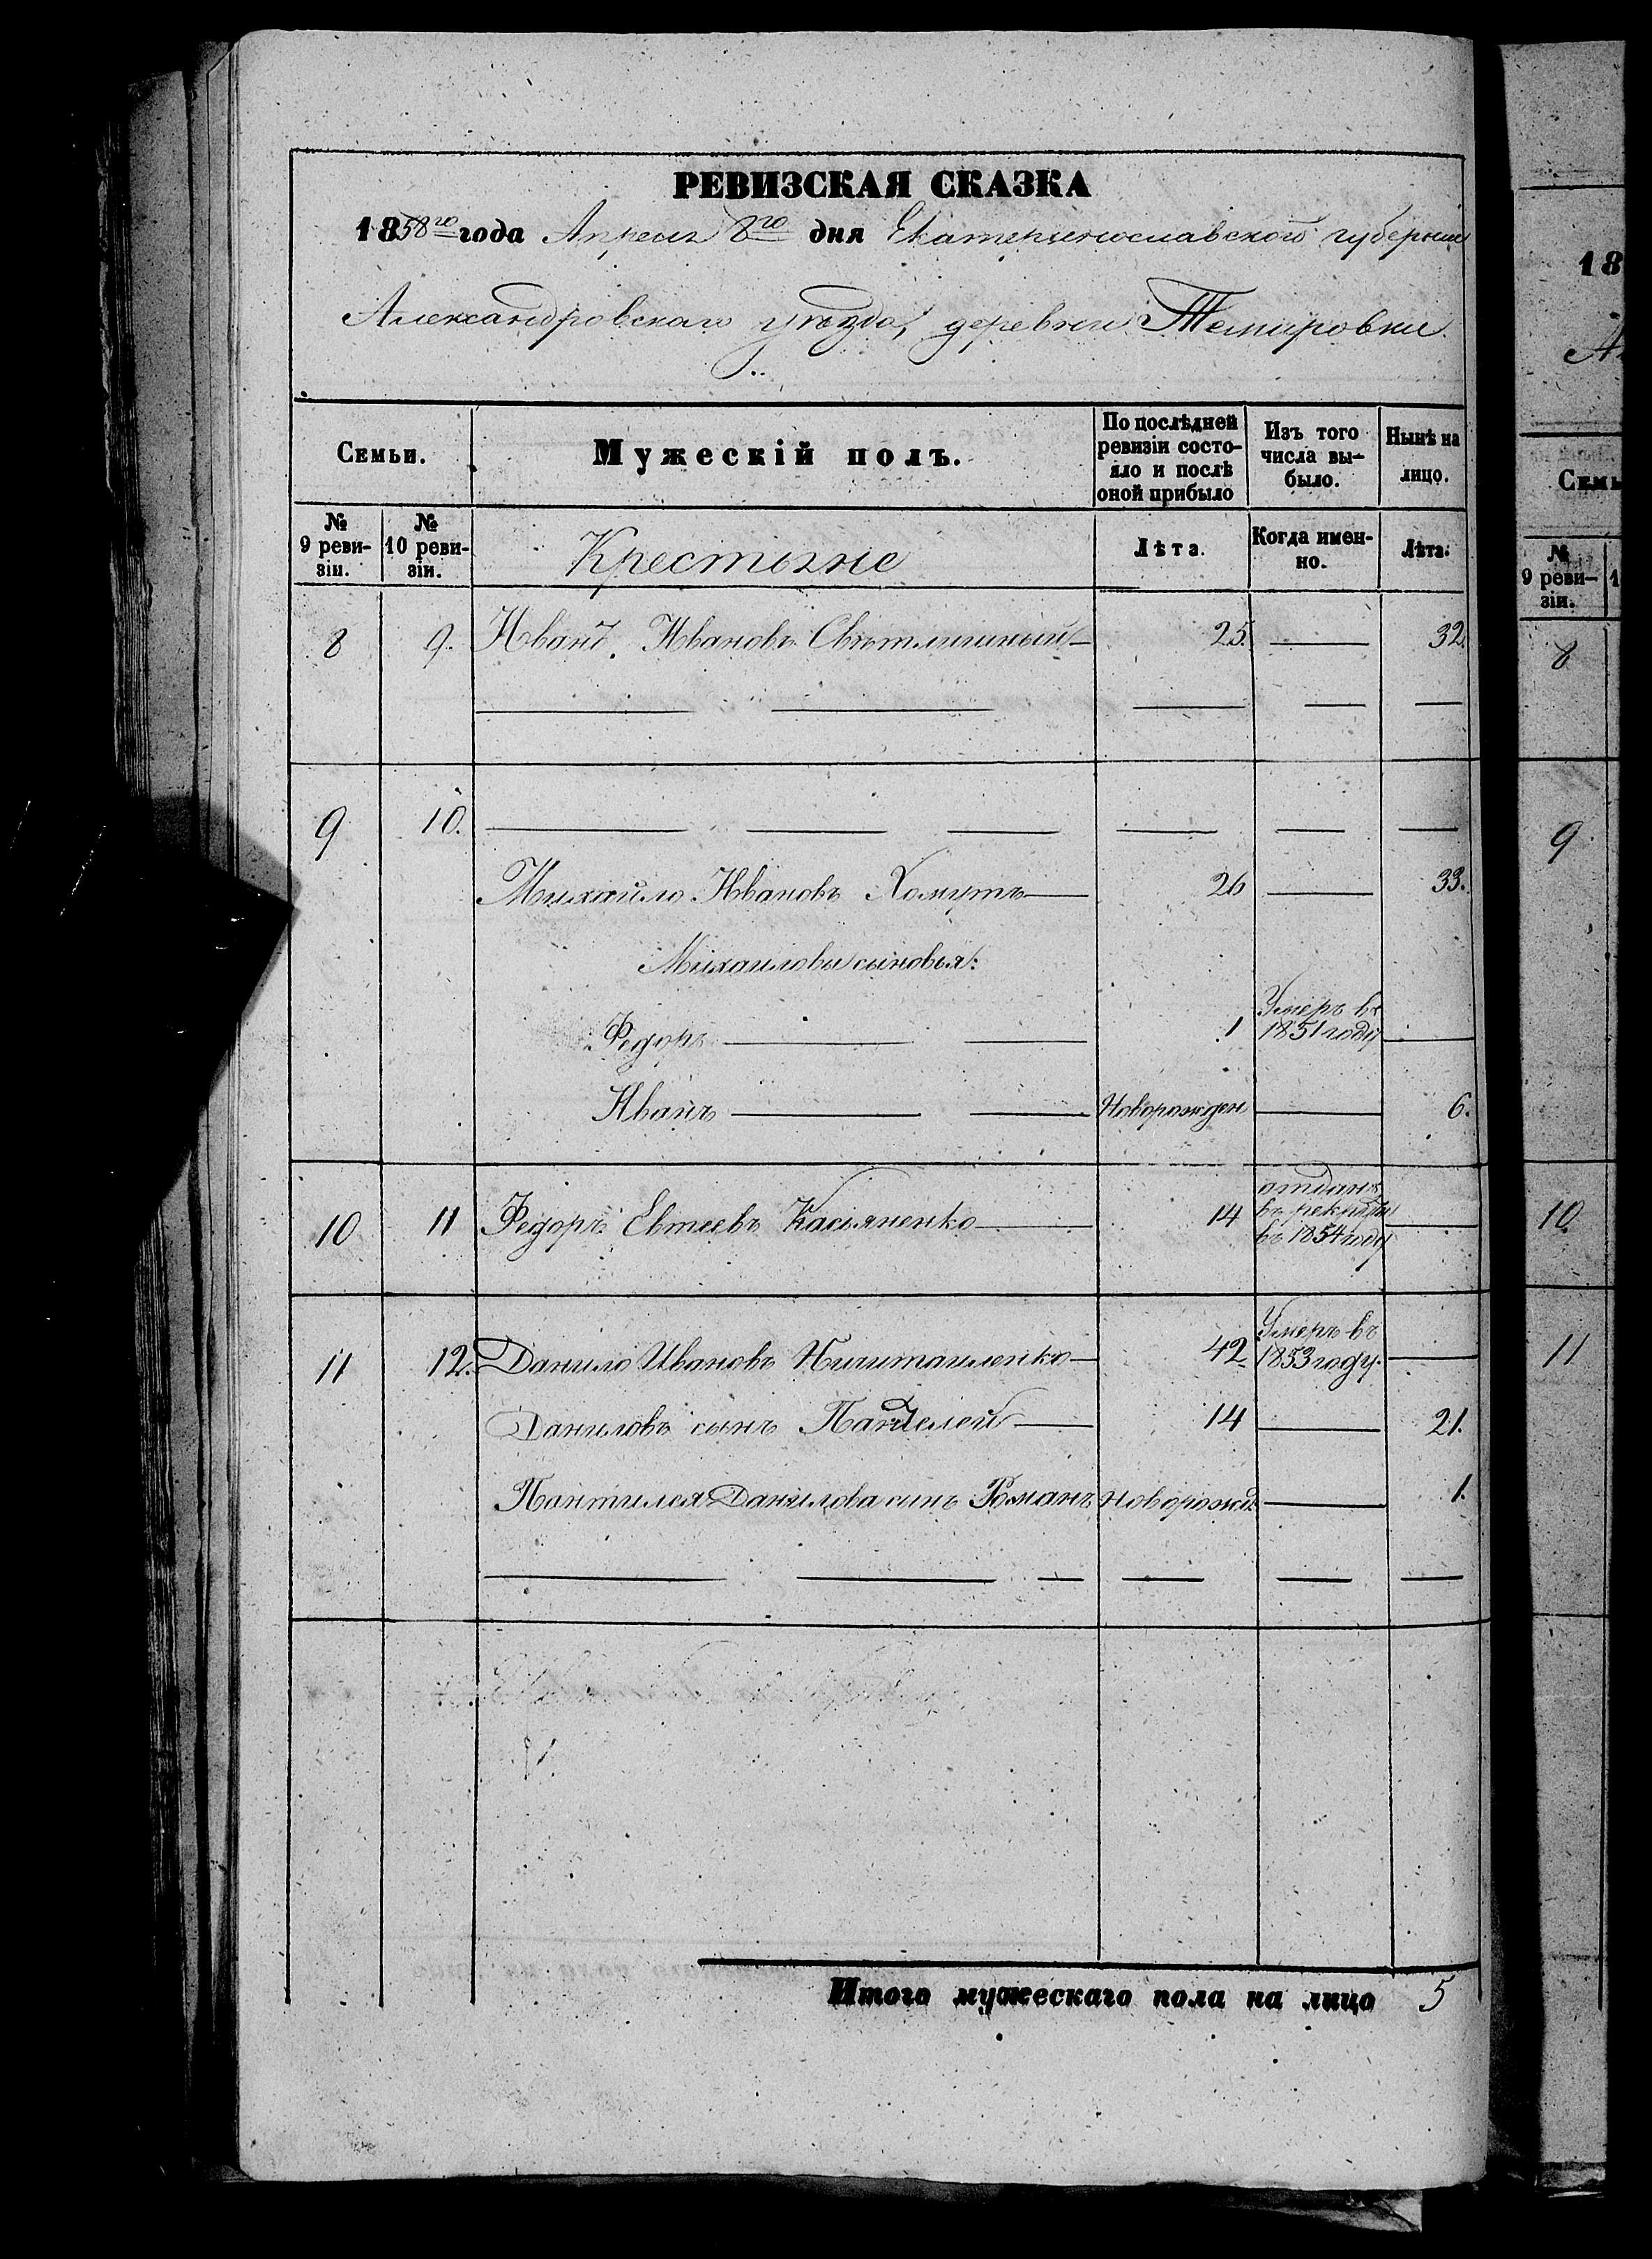 РЕВИЗСКАЯ СКАЗКА
1858го года Апреля 8го дня Екатеринославской губернии
Александровскаго уезда, деревни Темировки
Семьи.
Мужескій полъ.
По послѣдней ревизіи состояло и послѣ оной прибыло
Изъ того числа выбыло.
Нынѣ на лицо.
№ 9 ревизіи.
№ 10 ревизіи.
Крестьяне
Лѣта.
Когда именно.
Лѣта.
8 9. Иванъ Ивановъ 25. 32.
9 10.
Михайло Ивановъ Хомутъ 26 33.
Михайловы сыновья:
Федоръ 1 Умеръ въ 1851 году
Иванъ Новорожден 6.
10 11 Федоръ Евтеевъ Касіяненко 14 отданъ въ рекруты въ 1854 году
11 12. Данило Ивановъ 42 Умеръ въ 1853 году.
Даниловъ сынъ Пантелей 14 21.
Пантилея Данилова сынъ Романъ новорожд. 1.
Итого мужескаго пола на лицо 5
18
Семь
№ 9 ревизіи.
8
9
10
11